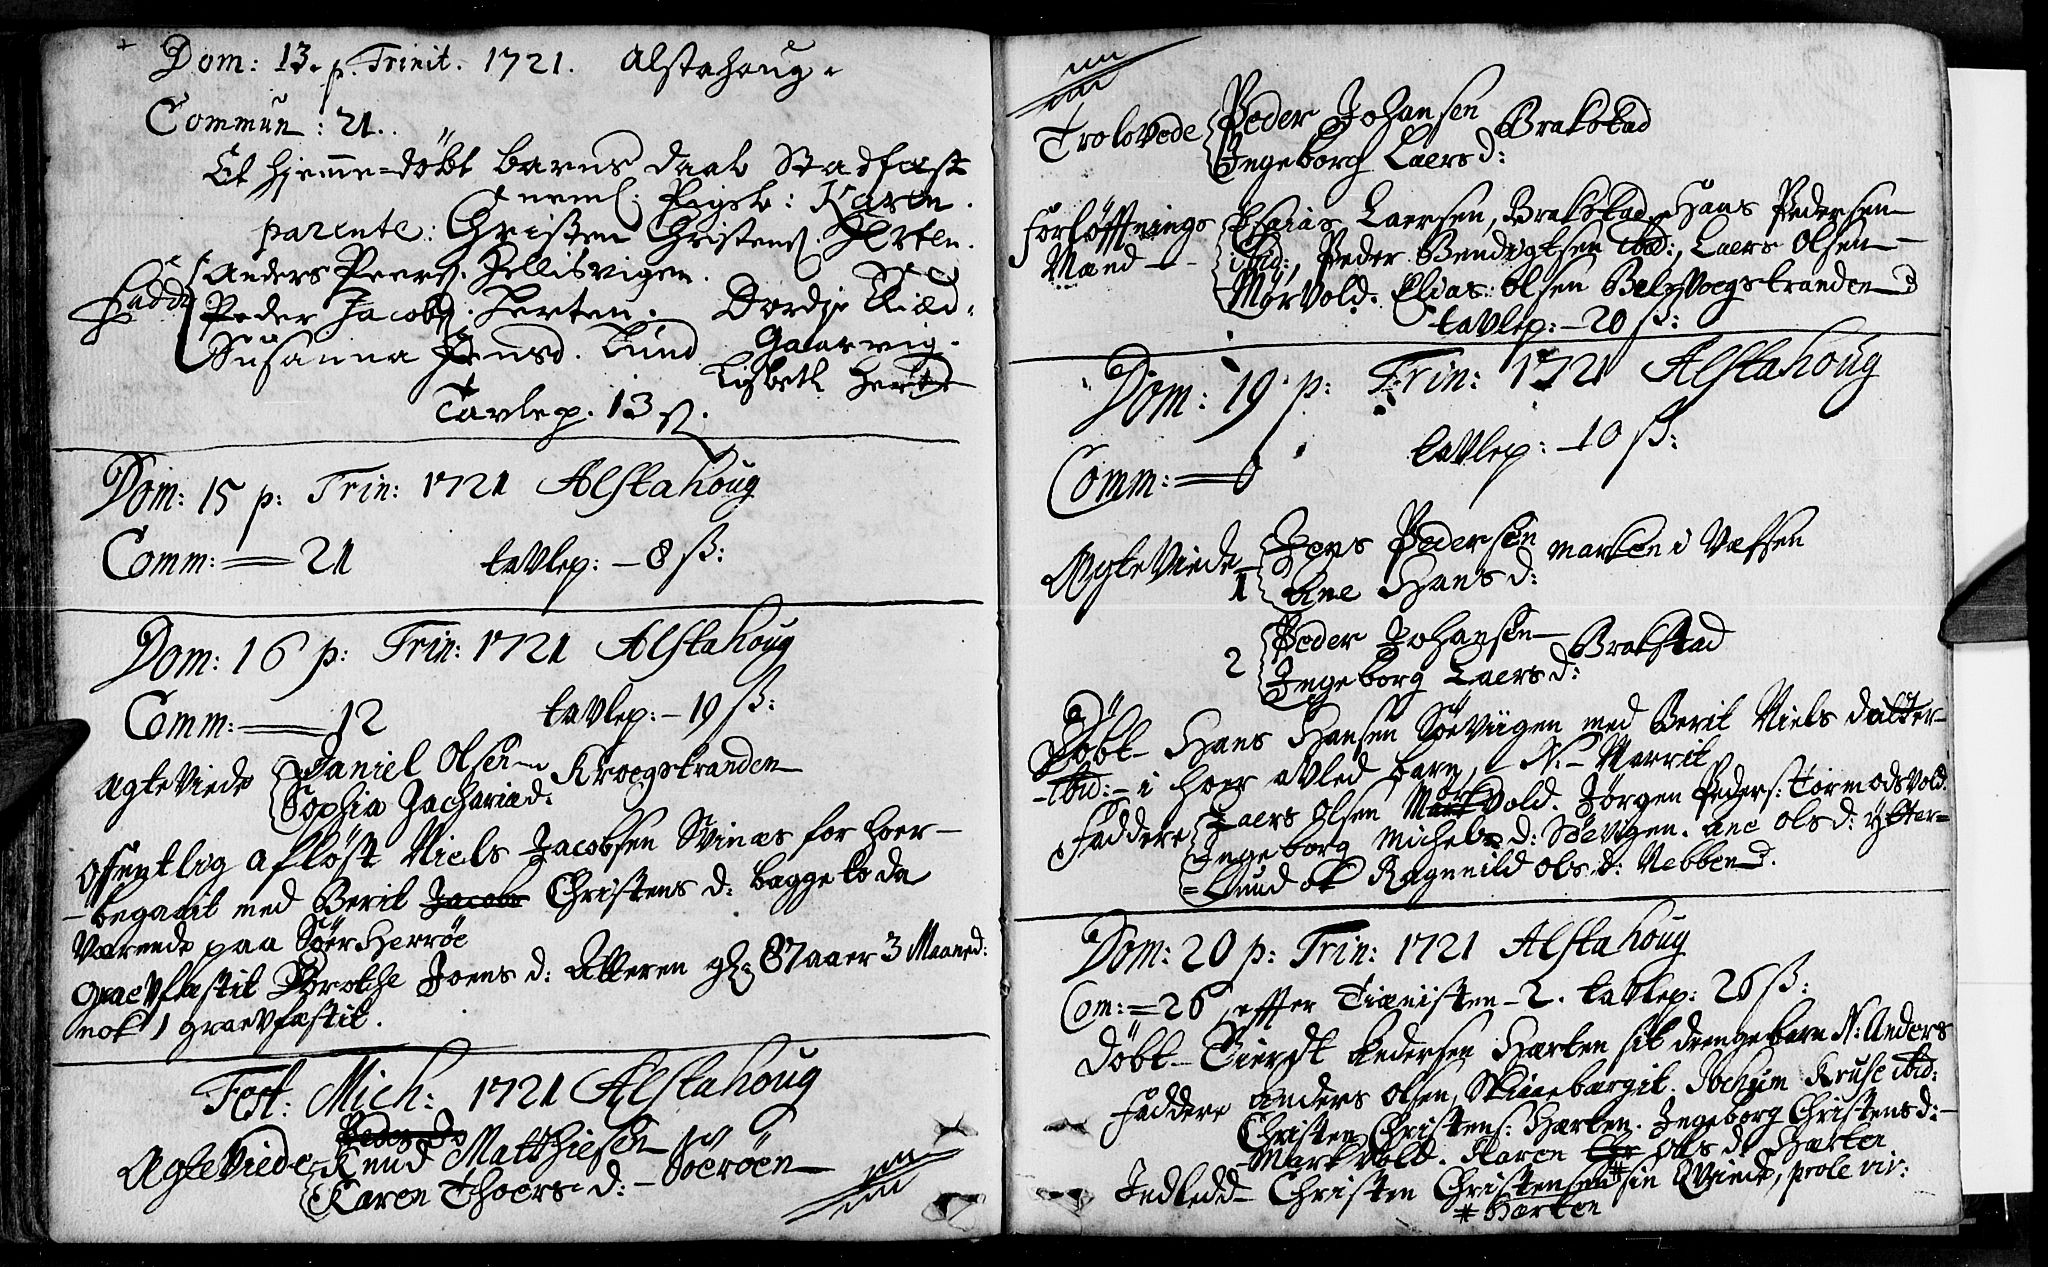 Dom: 13. p. Trinit. 1721. Alstahoug.
Commun: 21.
Et hjemme-döbt barns daab Stadfæst
neml. Pigeb: Karen.
parente: Christen Christens. Herten.
Fadd: Anders Peers. Hellisvigen.
Peder Jacobs. Herten. Dordje
Susanna Jensd. Lund Gaarvig.
Lisbeth Herte
Tavlep. 13 ß.
Dom: 15 p: Trin: 1721 Alstahoug
Comm: = 21 tavlep: - 8 ß:
Dom: 16 p: Trin: 1721 Alstahoug
Comm: = 12 tavlep: - 19 ß:
Ægte Viede Daniel Olsen Kroegstranden
Sophia Zachariæd:
Offentlig afløst Niels Jacobsen Svinæs for hoer-
-begaait med Berit Jacobs Christens d: begge to da
Værende paa Söer Herrøe
Graevfæstit Dorothe Joens d: Alteren gl: 87 aaer 3 Maaned:
nok 1 graevfæstit.
Fest: Mich: 1721 Alstahoug
Peder Jo
Ægte Viede Knud Matthiesen Soerøen
Karen Thoers d:
Trolovede Peder Johansen Brakstad
Ingeborg Laers d:
Forløffnings Esaias Laersen, Brakstad, Hans Pedersen
Mænd - ibid:, Peder Bendigtsen ibid:, Laers Olsen
Mørvold. Elias Olsen Belsvogstranden
tavlep: - 20 ß:
Dom: 19 p: Trin: 1721 Alstahoug
Comm: = 0 tavlep: - 10 ß:
Ægte Viede 1 Jens Pedersen marken i Vefsen
Ane Hans d:
2 Peder Johansen Brakstad
Ingeborg Laers d:
Døbt - Hans Hansen Söeviigen med Berit Niels datter
- ibid: - i hoer avled barn, N: Marrit
Faddere Laers Olsen Mørkvold. Jørgen Peders: Tormodsvold.
Ingeborg Michels d: Söevigen. Ane Ols d: Ytter=
=Lund ok Ragnnild Ols d: Nebben
Dom: 20 p: Trin: 1721 Alstahoug
Com: = 26, effter Tienisten - 2. tavlep: 26 ß:
Döbt - Siverdt Pedersen Hærten sit drengebarn N: Anders
Faddere Anders Olsen, Skieebærgit. Jochum Kruse ibid:
Christen Christens: Hærten. Ingeborg Christens d:
Markvold. Karen Chr Ols d: Hærten
Indledd - Christen Christensen # sin Qviede, prole viv:
# Hærten